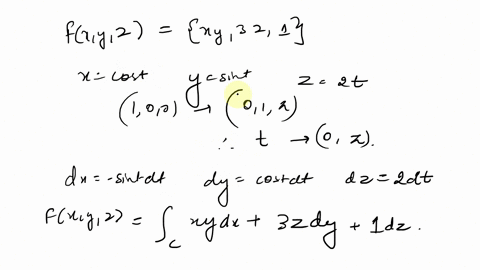 f(x,y,z) = {xy, 3z, 1}
x = cost y = sint z = 2t
(1,0,0) → (0,1,π)
∴ t → (0, π).
dx = -sint dt dy = cost dt dz = 2dt
F(x,y,z) = ∫_C xydx + 3zdy + 1dz.